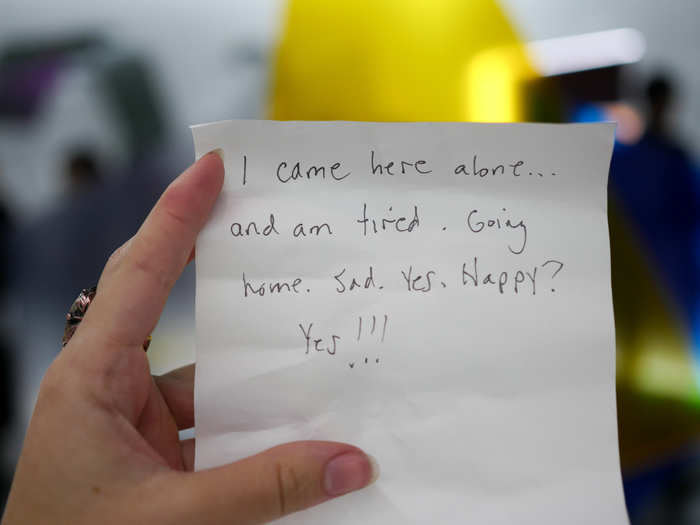 I came here alone...
and am tired. Going
home. Sad. Yes. Happy?
Yes!!!